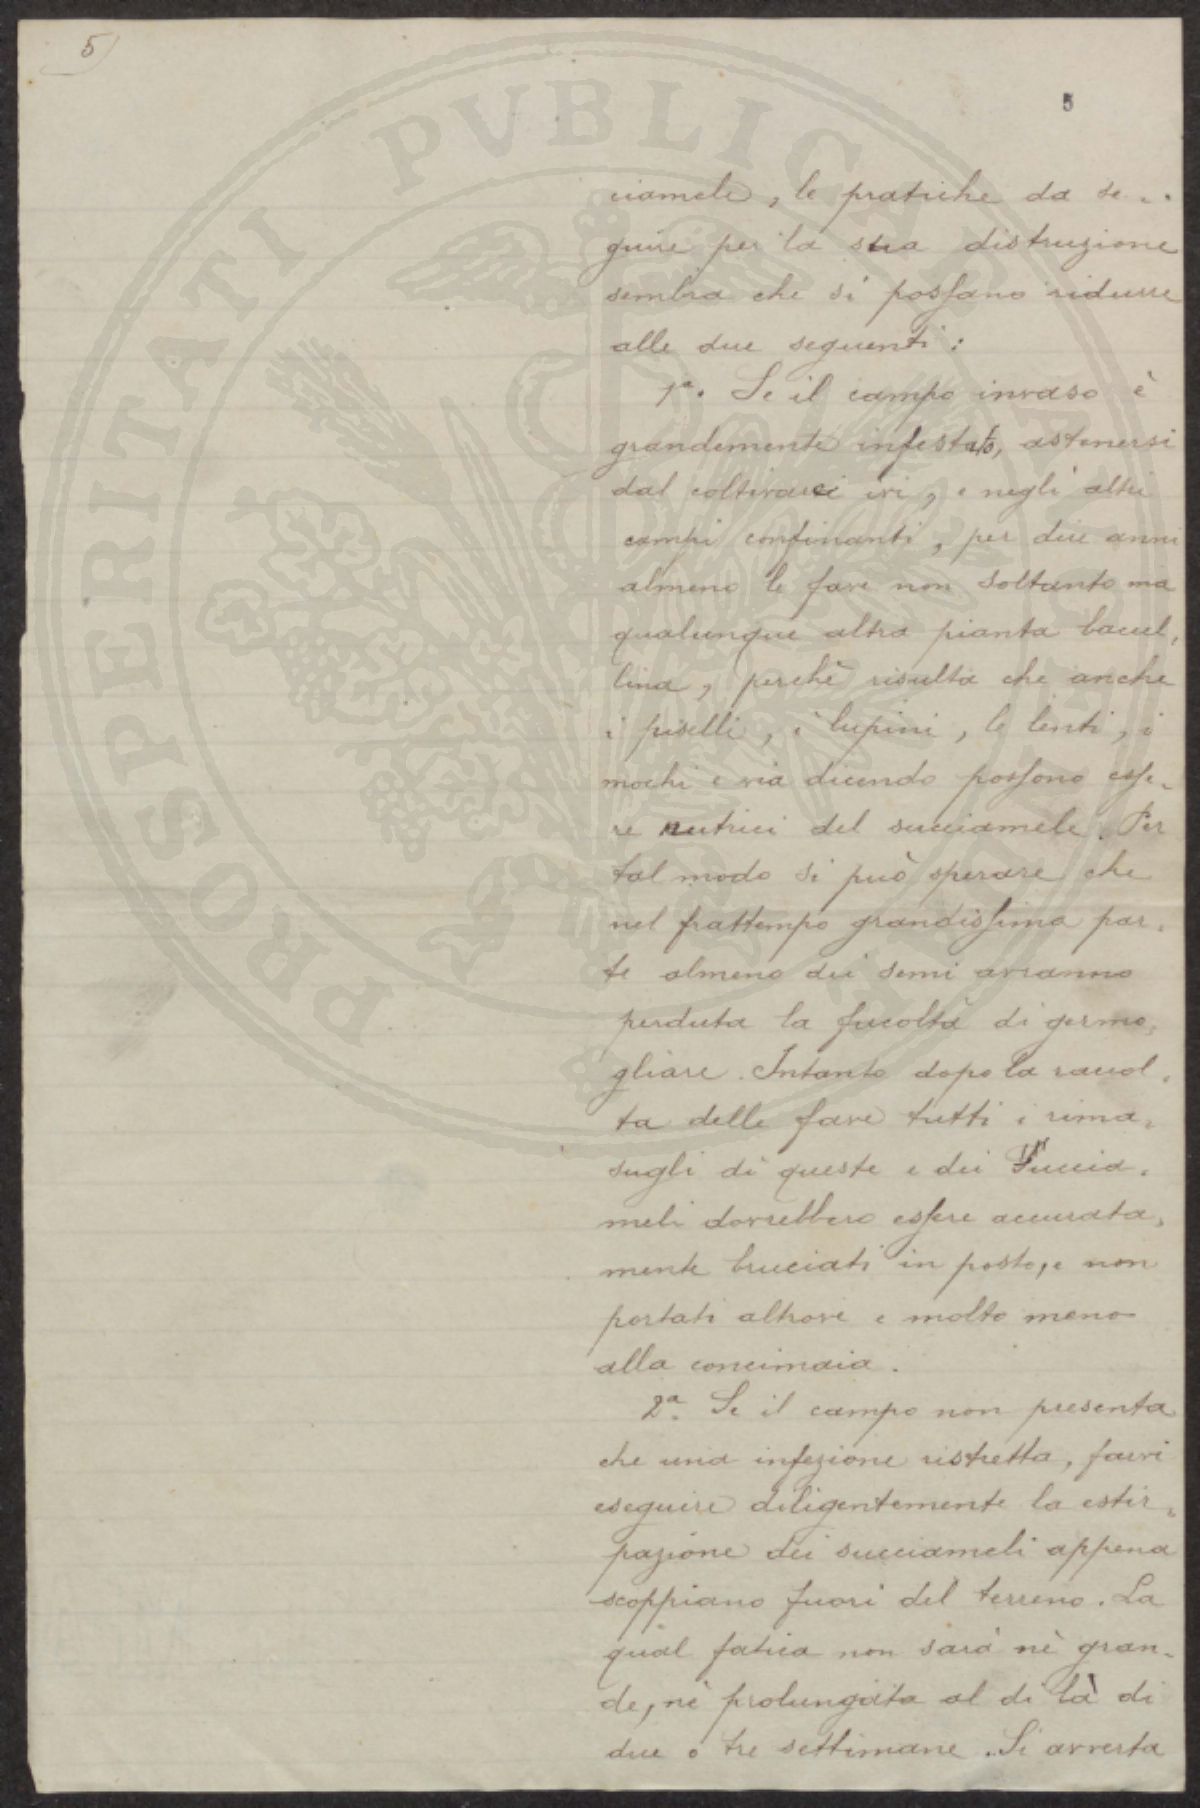 5)
5
ciamele, le pratiche da se-
guire per la sua distruzione
sembra che si possano ridurre
alle due seguenti:
1ª. Se il campo invaso è
grandemente infestato, astenersi
dal coltivarci ivi, e negli altri
campi confinanti, per due anni
almeno le fave non soltanto ma
qualunque altra pianta bacel-
lina, perchè risulta che anche
i piselli, i lupini, le lenti, i
mochi e via dicendo possono esse-
re nutrici del succiamele. Per
tal modo si può sperare che
nel frattempo grandissima par-
te almeno dei semi avranno
perduta la facoltà di germo-
gliare. Intanto dopo la raccol-
ta delle fave tutti i rima-
sugli di queste e dei Succia-
meli dovrebbero essere accurata-
mente bruciati in posto, e non
portati altrove e molto meno
alla concimaia.
2ª. Se il campo non presenta
che una infezione ristretta, farvi
eseguire diligentemente la estir-
pazione dei succiameli appena
scoppiano fuori del terreno. La
qual fatica non sarà nè gran-
de, nè prolungata al di là di
due o tre settimane. Si avverta
PROSPERITATI PVBLICAE